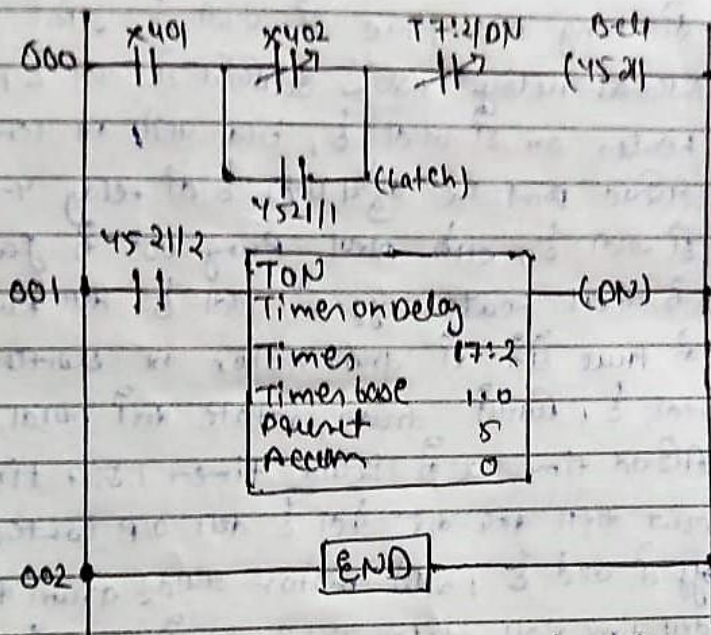 000 X401 X402 T7:2/DN Bell
(Y521)
Y521/1 (Latch)
Y521/2
001 TON (DN)
Timer on Delay
Timer T7:2
Timer base 1.0
Preset 5
Accum 0
002 END